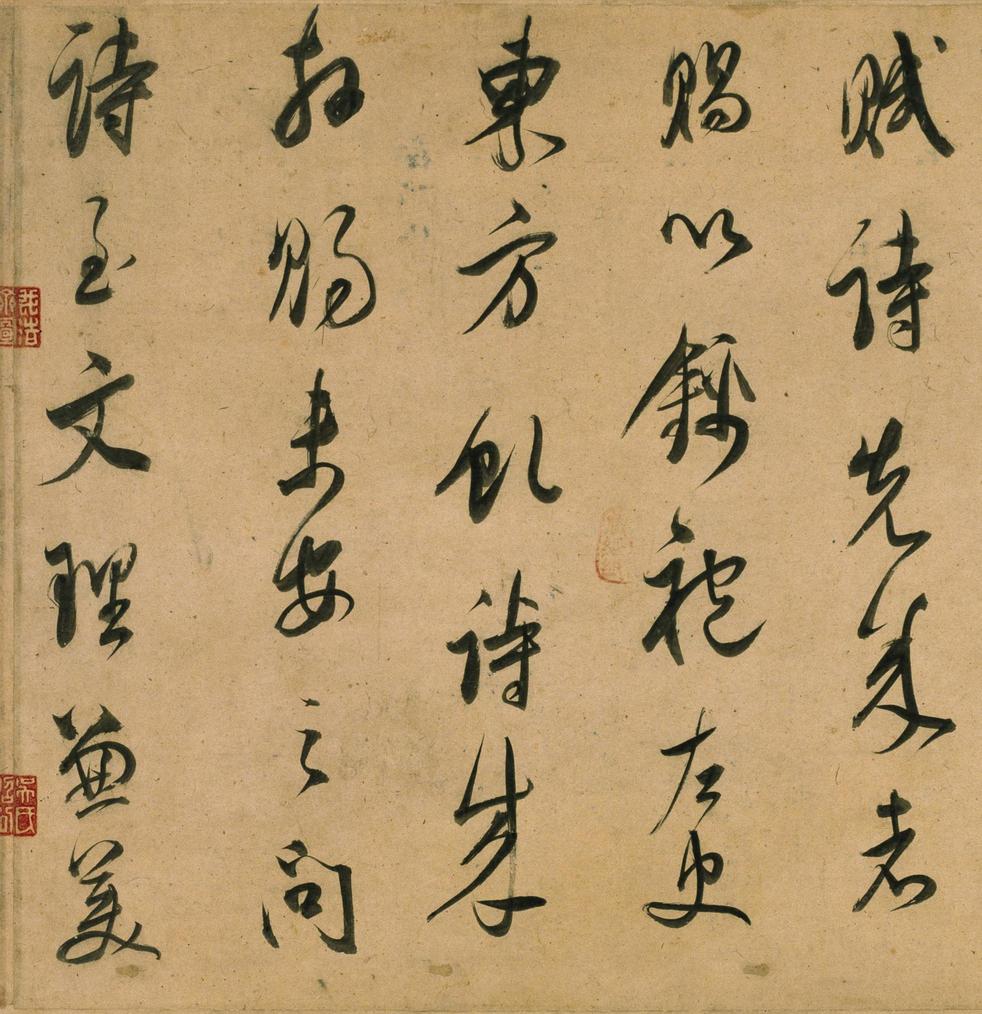 賦詩先成者
賜以錦袍左史
東方虬詩成
拜賜未安之問
詩至文理兼美